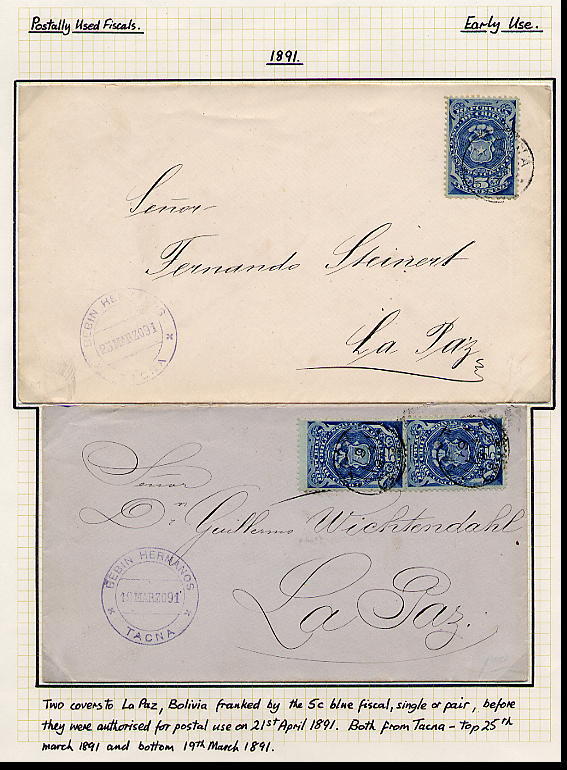 Postally Used Fiscals.
Early Use.
1891.
REPUBLICA
DE CHILE
5
Señor
Fernando Steinert
La Paz
BEBIN HERMANOS
25MARZO91
TACNA
5
5
Señor
Dn Guillermo Wichtendahl
La Paz.
BEBIN HERMANOS
19MARZO91
TACNA
Two covers to La Paz, Bolivia franked by the 5c blue fiscal, single or pair, before
they were authorised for postal use on 21st April 1891. Both from Tacna - top 25th
march 1891 and bottom 19th March 1891.